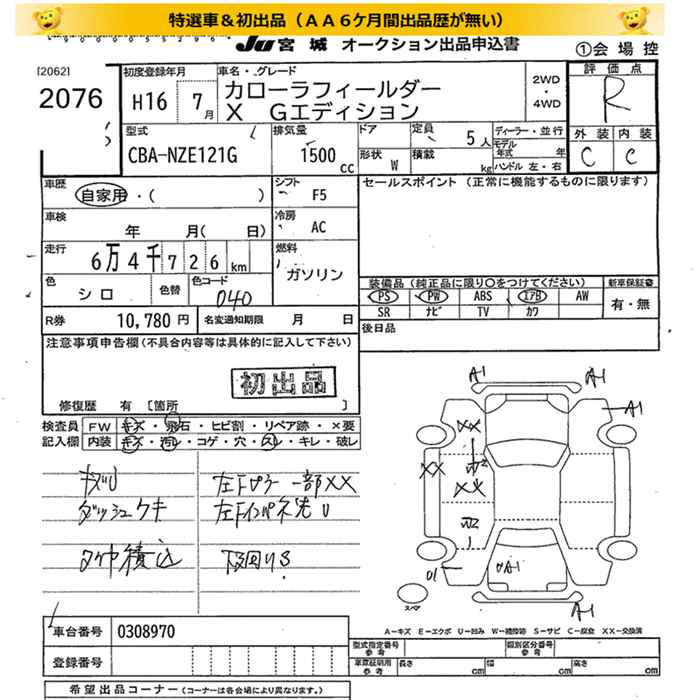 特選車＆初出品（ＡＡ６ケ月間出品歴が無い）
JU 宮城 オークション出品申込書
①会場控
[2062]
2076
初度登録年月
H16 7月
車名・グレード
カローラフィールダー
X Gエディション
2WD
・
4WD
評価点
R
外装 内装
C C
型式
CBA-NZE121G
排気量
1500 cc
ドア
定員 5人
形状 W
積載 kg
ディーラー・並行
モデル年式 年
ハンドル 左・右
車歴
自家用・( )
シフト
F5
セールスポイント（正常に機能するものに限ります）
車検
年 月( 日)
冷房
AC
走行
6万4千726km
燃料
ガソリン
色
シロ
色替
色コード
040
装備品（純正品に限り○をつけてください）
新車保証書
PS PW ABS エアB AW
SR ナビ TV カワ
有・無
R券 10,780円
名変通知期限 月 日
後日品
注意事項申告欄(不具合内容等は具体的に記入して下さい)
初出品
修復歴 有 [箇所 ]
検査員記入欄
FW キズ・飛石・ヒビ割・リペア跡・×要
内装 キズ・汚れ・コゲ・穴・スレ・キレ・破レ
左下ピラー一部XX
ダッシュキキ
左下インパネ先U
積込
下回りS
A1
A1
A1
XX
XX
XX
U2
U2
U1
UA1
A1
スペア
A－キズ E－エクボ U－凹み W－補修跡 S－サビ C－腐食 XX－交換済
車台番号 0308970
登録番号
型式指定番号 参考
類別区分番号 参考
車庫証明用 参考
長さ cm
幅 cm
高さ cm
希望出品コーナー(コーナーは各会場により異なります。)